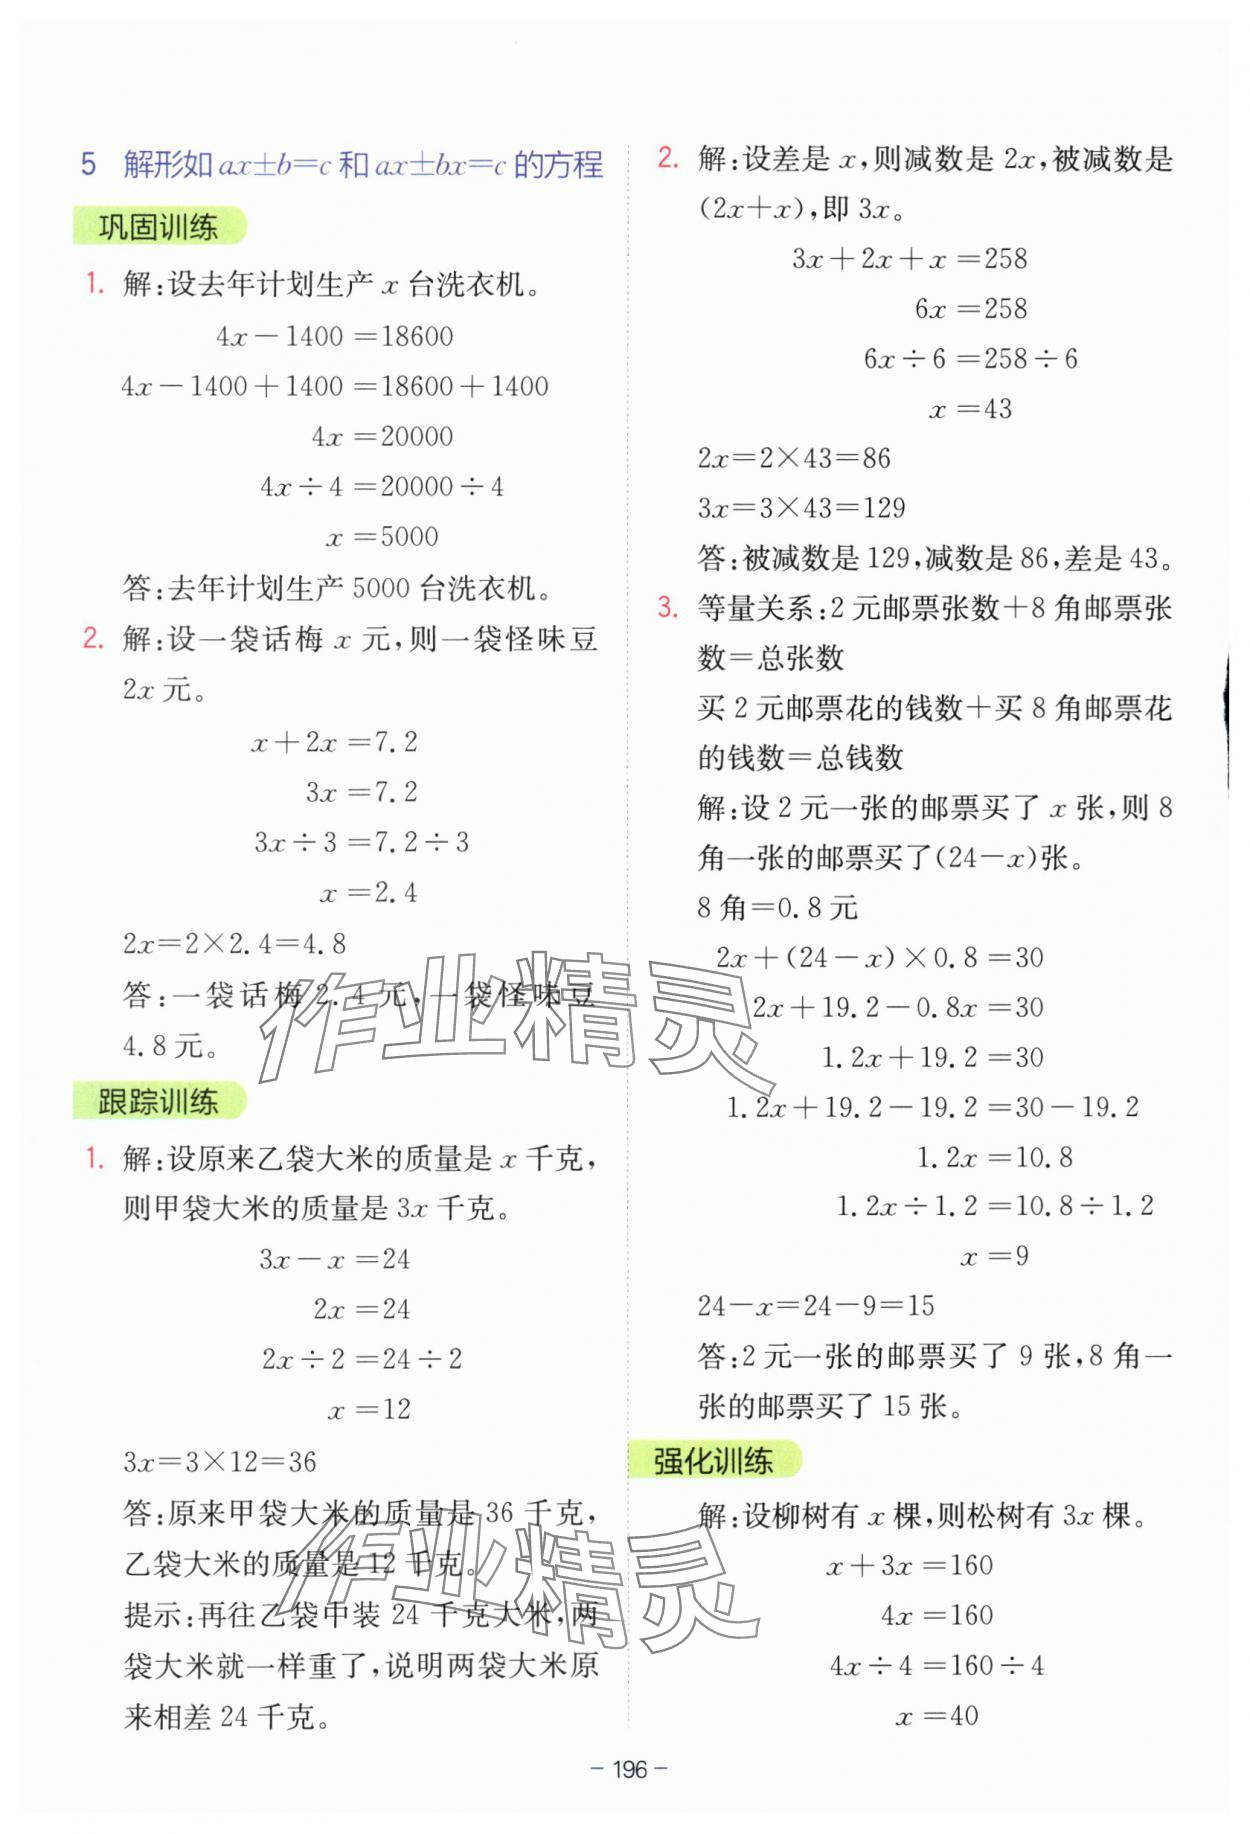 5 解形如 ax±b=c 和 ax±bx=c 的方程
巩固训练
1. 解:设去年计划生产 x 台洗衣机。
4x-1400=18600
4x-1400+1400=18600+1400
4x=20000
4x÷4=20000÷4
x=5000
答:去年计划生产 5000 台洗衣机。
2. 解:设一袋话梅 x 元,则一袋怪味豆
2x 元。
x+2x=7.2
3x=7.2
3x÷3=7.2÷3
x=2.4
2x=2×2.4=4.8
答:一袋话梅 2.4 元,一袋怪味豆
4.8 元。
跟踪训练
1. 解:设原来乙袋大米的质量是 x 千克,
则甲袋大米的质量是 3x 千克。
3x-x=24
2x=24
2x÷2=24÷2
x=12
3x=3×12=36
答:原来甲袋大米的质量是 36 千克,
乙袋大米的质量是 12 千克。
提示:再往乙袋中装 24 千克大米,两
袋大米就一样重了,说明两袋大米原
来相差 24 千克。
2. 解:设差是 x,则减数是 2x,被减数是
(2x+x),即 3x。
3x+2x+x=258
6x=258
6x÷6=258÷6
x=43
2x=2×43=86
3x=3×43=129
答:被减数是 129,减数是 86,差是 43。
3. 等量关系:2 元邮票张数+8 角邮票张
数=总张数
买 2 元邮票花的钱数+买 8 角邮票花
的钱数=总钱数
解:设 2 元一张的邮票买了 x 张,则 8
角一张的邮票买了(24-x)张。
8 角=0.8 元
2x+(24-x)×0.8=30
2x+19.2-0.8x=30
1.2x+19.2=30
1.2x+19.2-19.2=30-19.2
1.2x=10.8
1.2x÷1.2=10.8÷1.2
x=9
24-x=24-9=15
答:2 元一张的邮票买了 9 张,8 角一
张的邮票买了 15 张。
强化训练
解:设柳树有 x 棵,则松树有 3x 棵。
x+3x=160
4x=160
4x÷4=160÷4
x=40
作业精灵
作业精灵
- 196 -